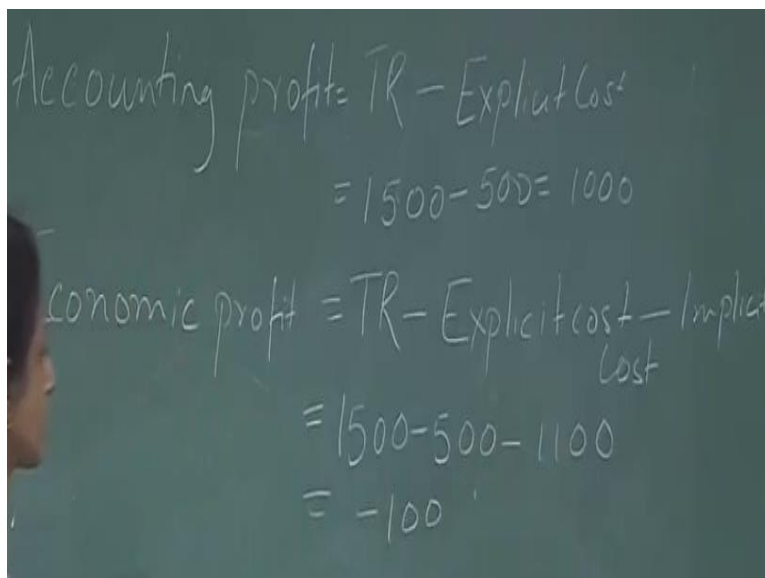 Accounting profit= TR - Explicit Cost
= 1500 - 500 = 1000
Economic profit = TR - Explicit cost - Implicit
Cost
= 1500 - 500 - 1100
= -100